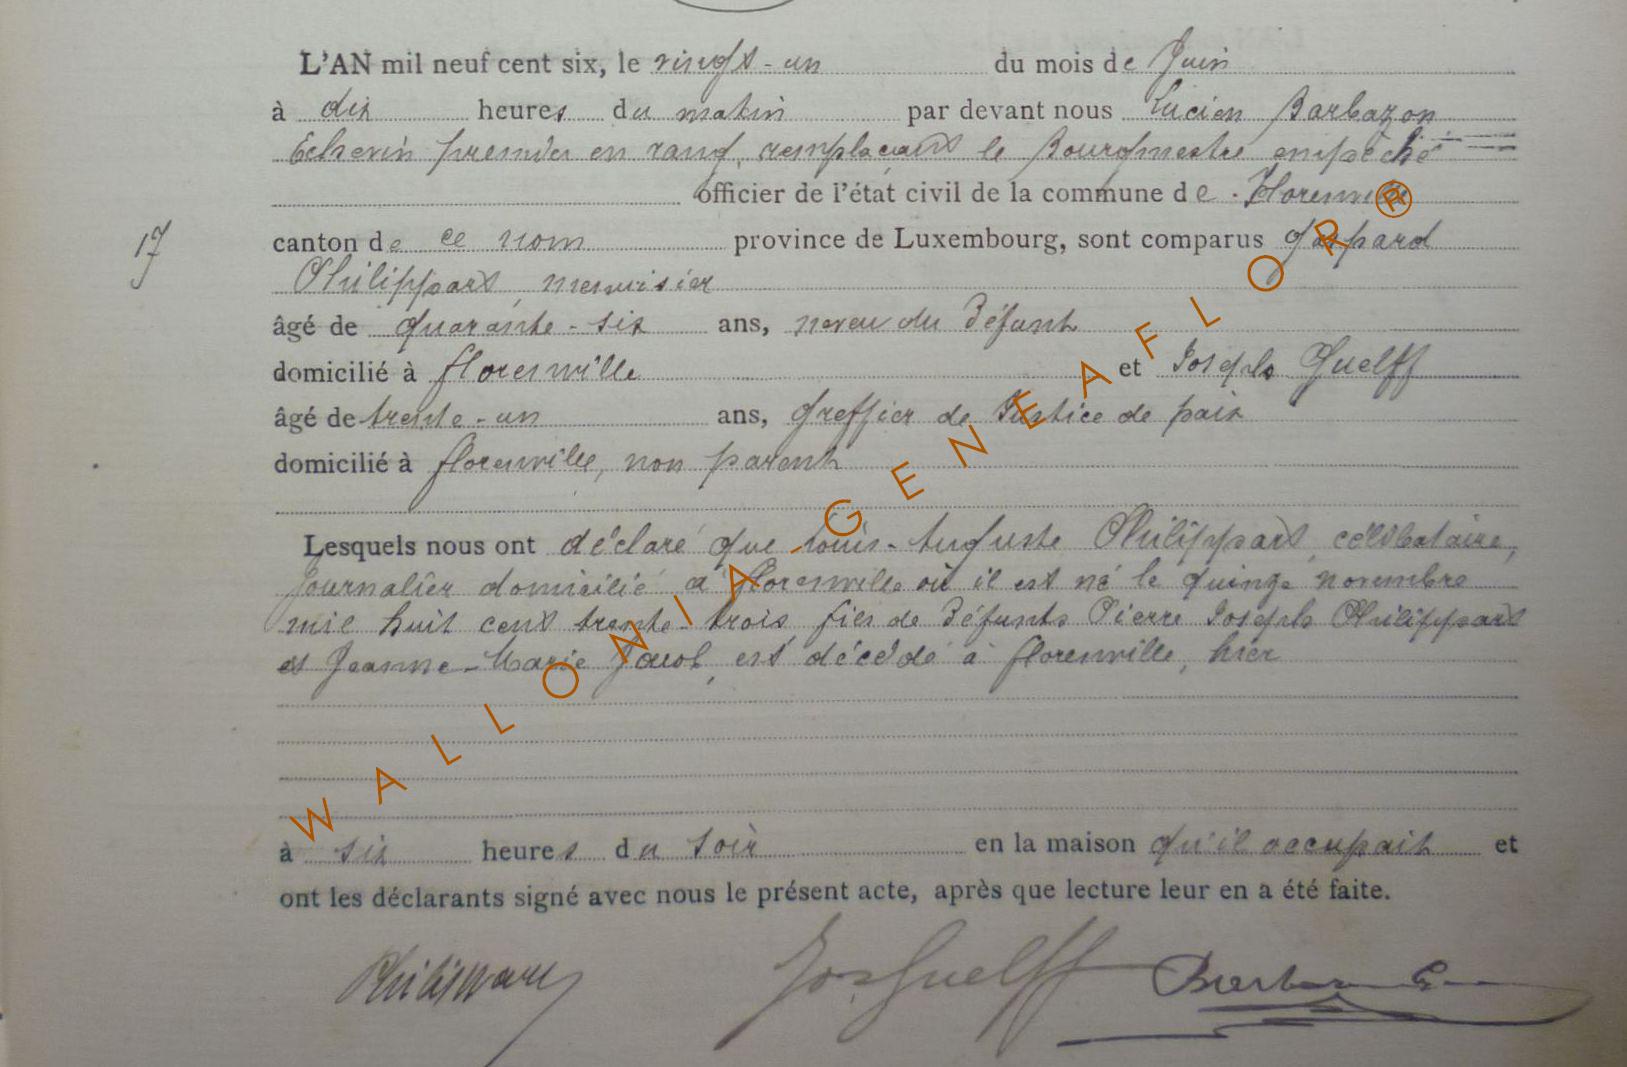 L'AN mil neuf cent six, le vingt-un du mois de Juin
à dix heures du matin par devant nous Lucien Barbazon
Echevin premier en rang, remplaçant le Bourgmestre empêché
officier de l'état civil de la commune de Florenville
17 canton de ce nom province de Luxembourg, sont comparus Gaspard
Philippart, menuisier
âgé de quarante-six ans, neveu du Défunt
domicilié à florenville et Joseph Guelff
âgé de trente-un ans, greffier de Justice de paix
domicilié à florenville, non parent
Lesquels nous ont déclaré que Louis-Auguste Philippart, célibataire,
Journalier domicilié à Florenville où il est né le quinze novembre
mil huit cent trente-trois, fils de Défunts Pierre Joseph Philippart
et Jeanne-Marie Jacob, est décédé à florenville, hier
à six heures du soir en la maison qu'il occupait et
ont les déclarants signé avec nous le présent acte, après que lecture leur en a été faite.
Philippart Jos. Guelff Barbazon
WALLONIA GENEAFLOR ®